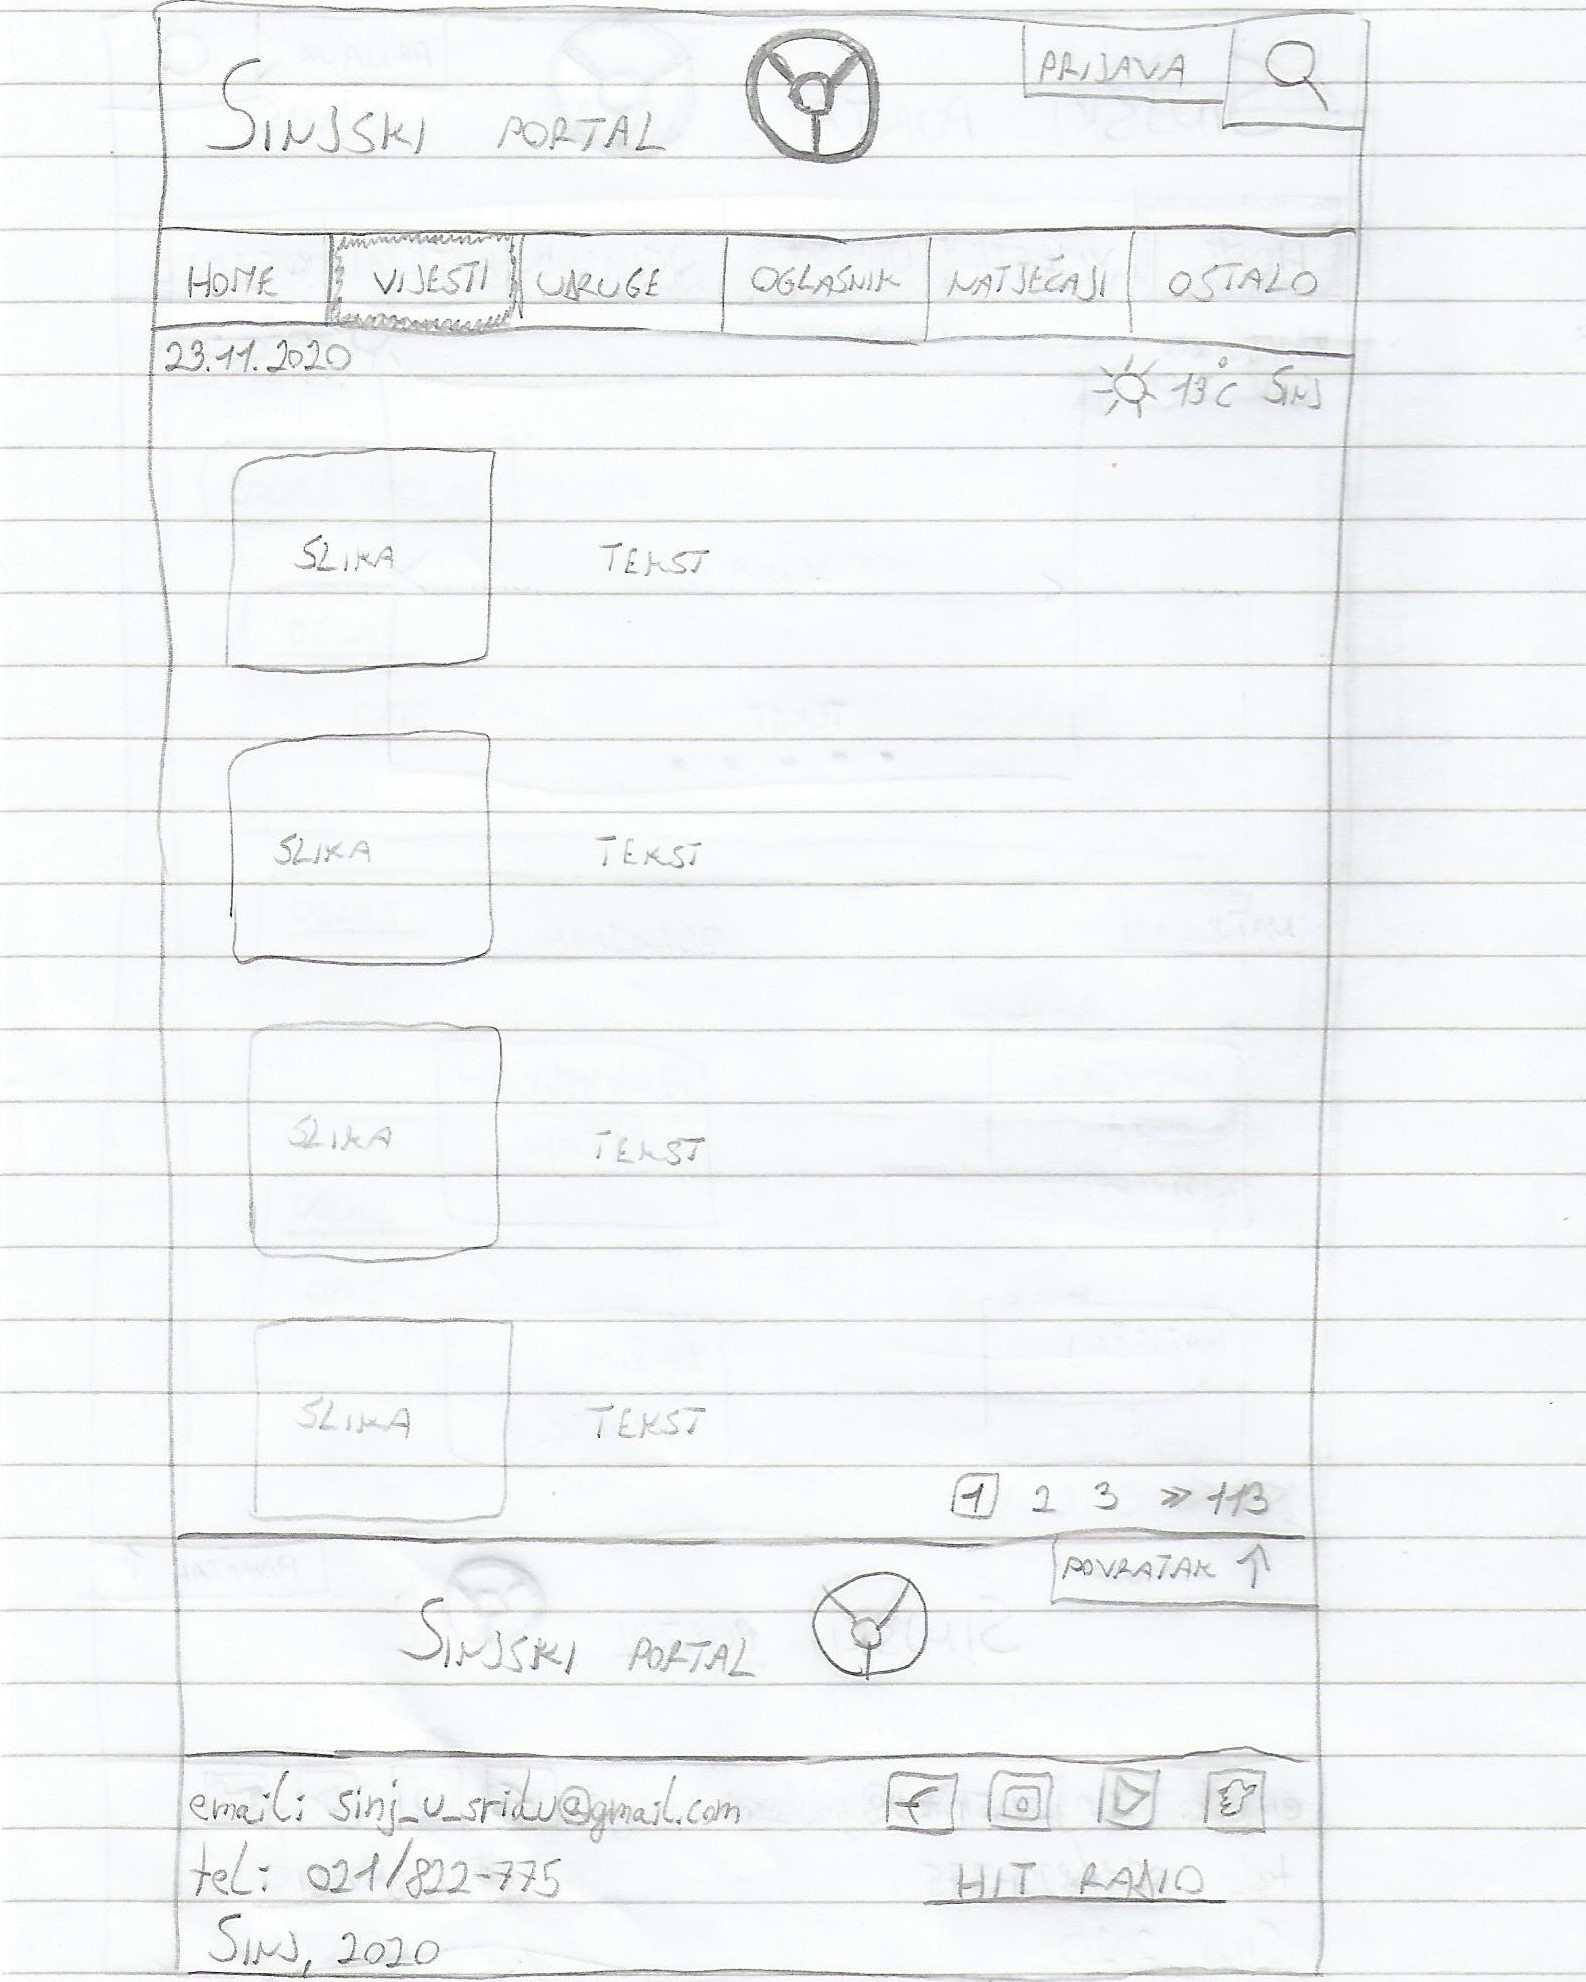 SINJSKI PORTAL
PRIJAVA
HOME VIJESTI UDRUGE OGLASNIK NATJEČAJI OSTALO
23.11.2020
13°C SINJ
SLIKA TEKST
SLIKA TEKST
SLIKA TEKST
SLIKA TEKST
1 2 3 >> 113
POVRATAK ↑
SINJSKI PORTAL
email: sinj_u_sridu@gmail.com
tel: 021/822-775
HIT RADIO
SINJ, 2020